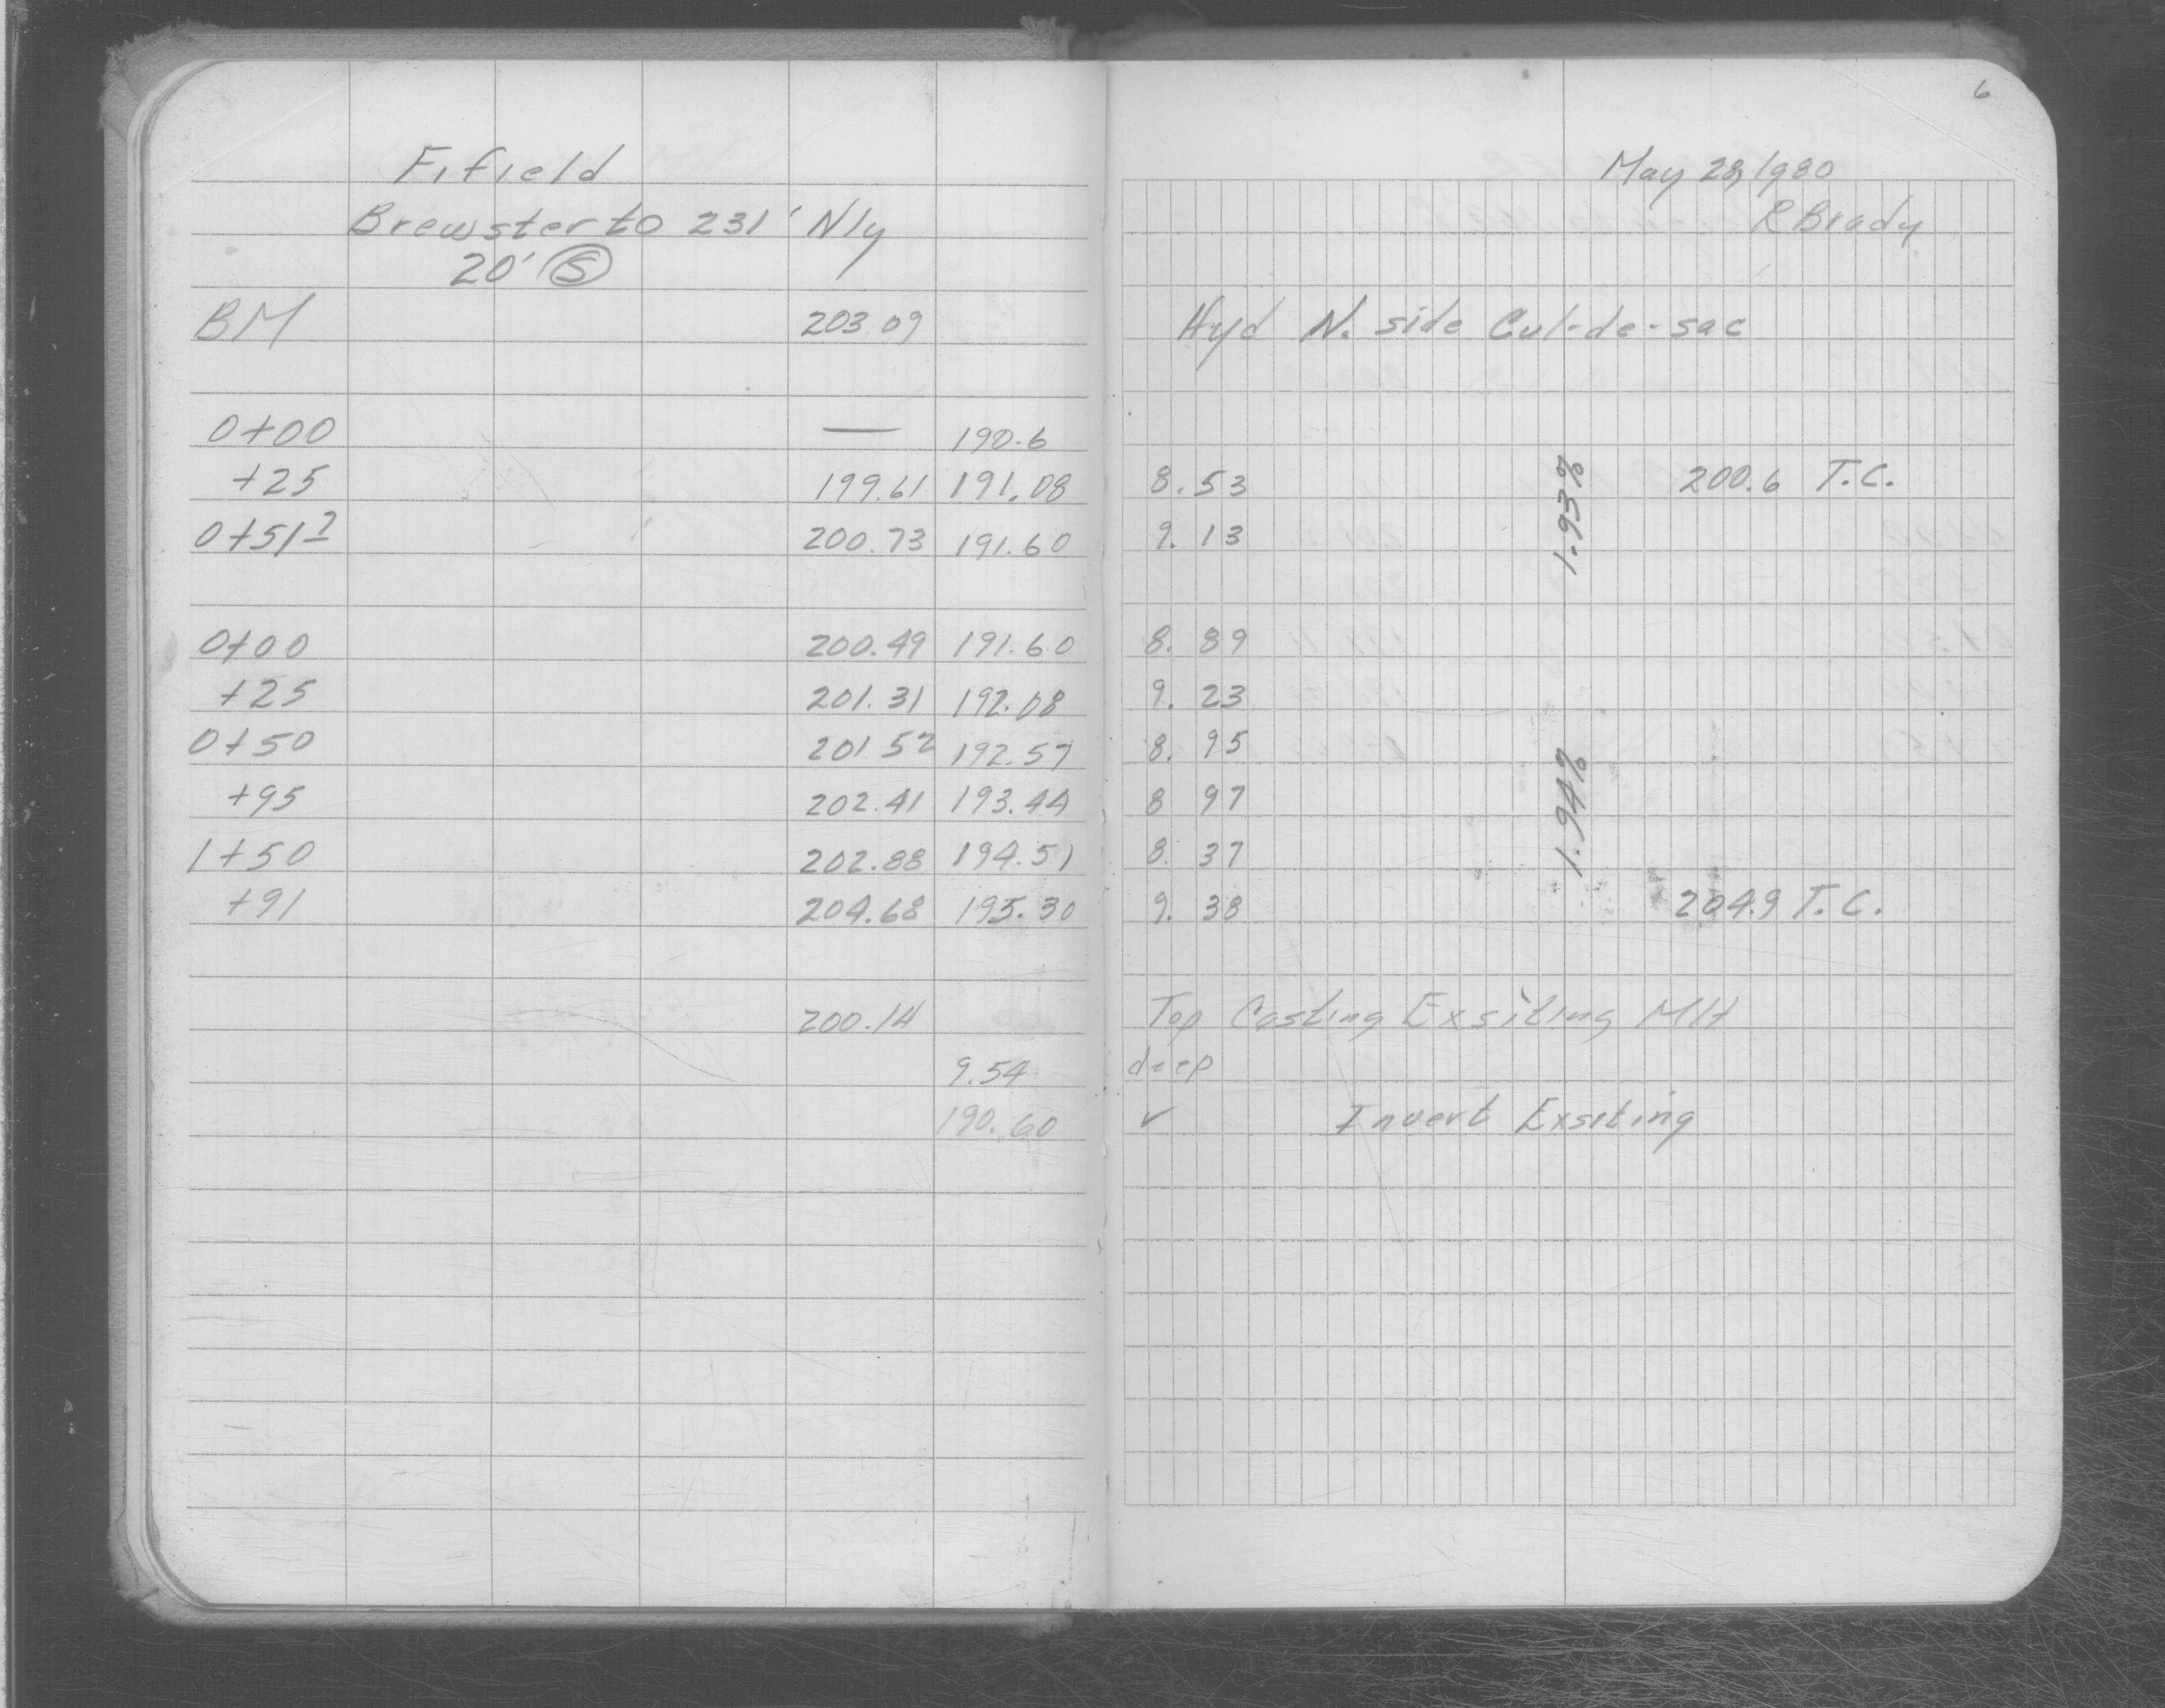 6
Fifield
May 28, 1980
Brewster to 231' Nly
R Brady
20' Ⓢ
BM 203.09 Hyd N. side Cul-de-sac
0+00 — 190.6
+25 199.61 191.08 8.53 200.6 T.C.
0+51 200.73 191.60 9.13
1.93%
0+00 200.49 191.60 8.89
+25 201.31 192.08 9.23
0+50 201.52 192.57 8.95
+95 202.41 193.44 8 97
1.94%
1+50 202.88 194.51 8.37
+91 204.68 195.30 9.38 204.9 T.C.
200.14 Top Casting Exsiting MH
9.54 deep
190.60 ✓ Invert Exsiting